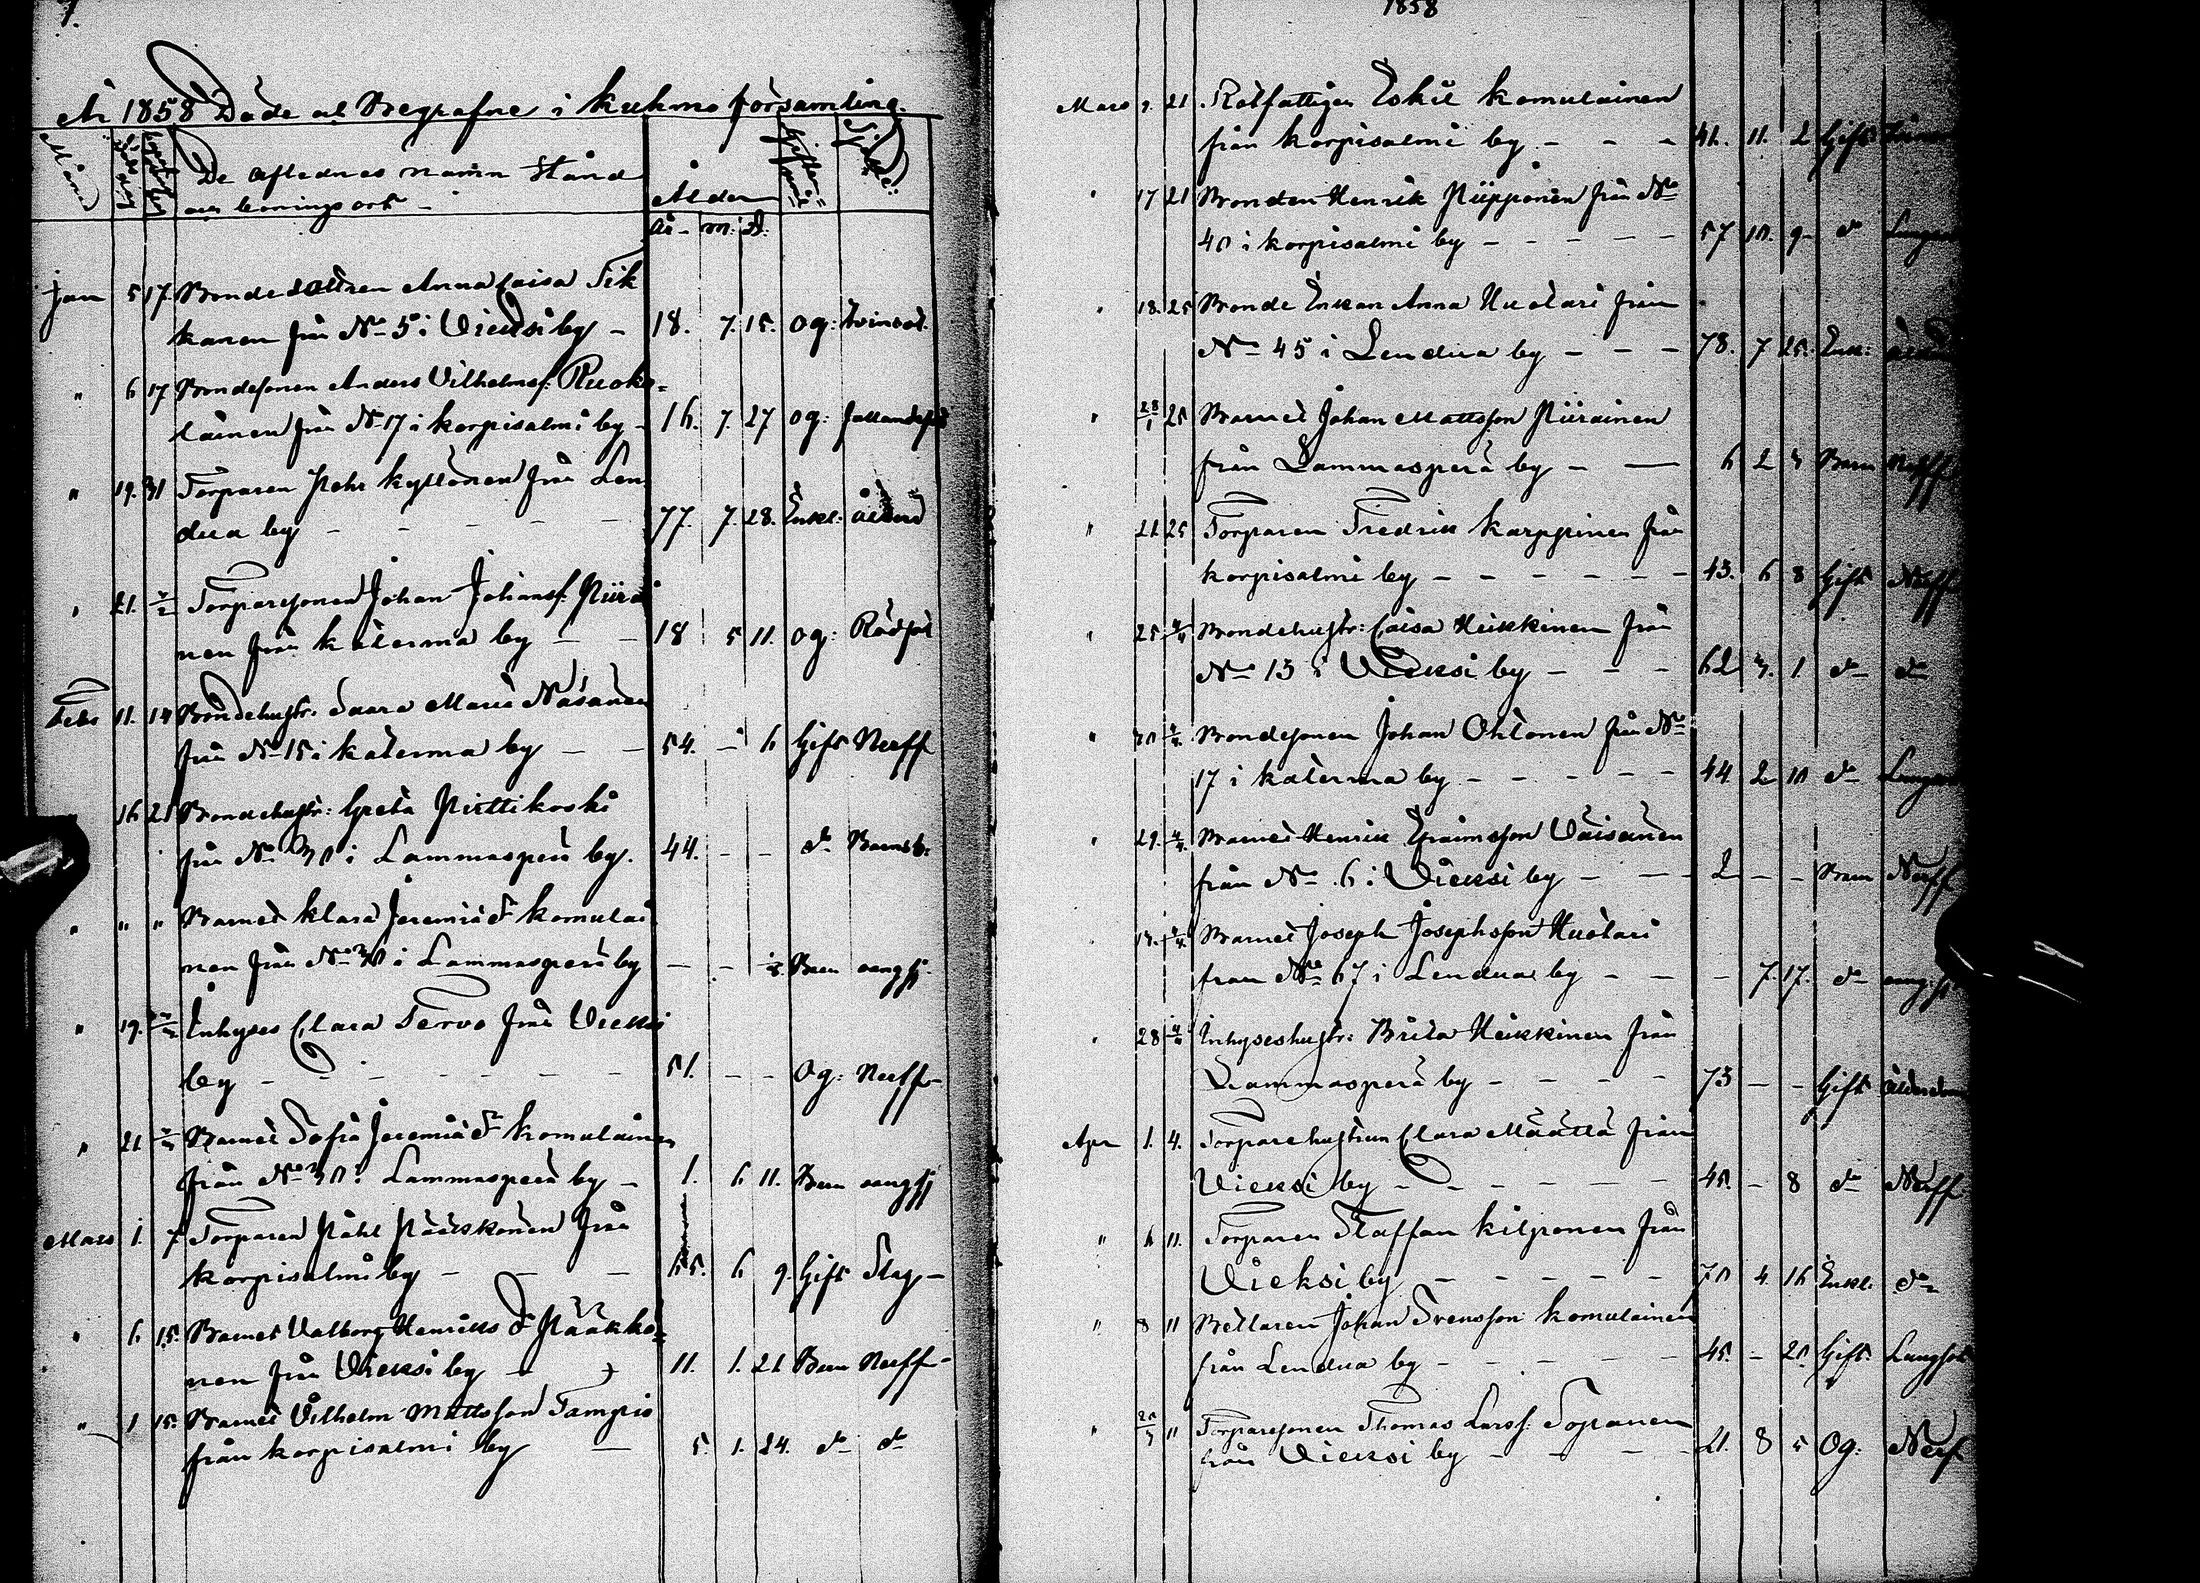 7.
År 1858 Döde ok Begrafne i Kuhmo församling.
De aflednes namn Stånd
och boningsort
Ålder
År m: D.
Jan 5 17 Bondedottren Anna Caisa Sik
kanen från No 5 i Vieksi by - 18. 7. 15. Og:
" 6 17 Bondesonen Anders Vilhelmsf. Ruoko=
lainen från No 17 i Korpisalmi by - 16. 7. 27 Og:
" 19. 31 Torparen Pehr Kyllönen från Len
dua by - - - - - 77. 7. 28. Enkl: Ålderd
" 21. Torparesonen Johan Johansf. Piirai
nen från Katerma by - - 18 5 11. Og: Rödsot
Febr 11. 14 Bondehustr: Saara Maria Näsänen
från No 15 i Katerma by - - 54. - 6 Gift Nerff
16 21 Bondehustr: Greta Pirttikoski
från No 30 i Lammasperä by. 44. - - do Barnsb:
" " " Barnet Klara Jeremiæ dr Komulai
nen från No 30 i Lammasperä by - - Barn
" 19. Inhyses Clara Tervo från Vieksi
by - - - - - - 51. - - Og: Nerff-
" 21 Barnet Sofia Jeremiæ dr Komulainen
från No 30 i Lammasperä by - 1. 6 11. Barn
Mars 1. 7 Torparen Påhl Pääskönen från
Korpisalmi by - - - 55. 6 9. Gift Slag-
" 6 15. Barnet Valborg Henriks dr Pääkkö=
nen från Vieksi by - - 11. 1. 21 Barn Nerff-
" 1 15. Barnet Vilhelm Mattsson Tampio
från Korpisalmi by - 5. 1. 24. do do
1858
Mars 9. 21 Rotfattigen Eskil Komulainen
från Korpisalmi by - - - 41. 11. 2 Gift
" 17 21 Bonden Henrik Piipponen från No
40 i Korpisalmi by - - - - - 57 10. 9- do
" 18. 25 Bonde Enkan Anna Huotari från
No 45 i Lendua by - - - 78. 7 25. Enk:
" 28/1 25 Barnet Johan Mattsson Piirainen
från Lammasperä by - - 6 2 3 Barn Nerff
" 21 25 Torparen Fredrik Karppinen från
Korpisalmi by - - - - - - 43. 6 8 Gift Nerff
" 25 Bondehustr: Caisa Heikkinen från
No 13 i Vieksi by - - - 62 3. 1. do do
" 30 Bondesonen Johan Ohtonen från No
17 i Katerma by - - - - - 44 2 10 do
" 29. Barnet Henrik Efraimsson Väisänen
från No 6 i Vieksi by - - - 2 - - Barn Nerff
13. Barnet Joseph Josephsson Huotari
från No 67 i Lendua by - - - 7. 17. do
" 28 Inhyseshustr: Brita Heikkinen från
Lammasperä by - - - - 73 - - Gift
Apr 1. 4. Torparehustrun Clara Määttä från
Vieksi by - - - - - - 45. - 8 do Nerff
" 6 11. Torparen Staffan Kilponen från
Vieksi by - - - - - 70 4. 16 Enkl: do
" 8 11 Bettlaren Johan Svensson Komulainen
från Lendua by - - - - - 45. - 20. Gift.
" 11 Torparesonen Thomas Larsf. Sopanen
från Vieksi by - - - - 21. 8 5 Og: Nerf